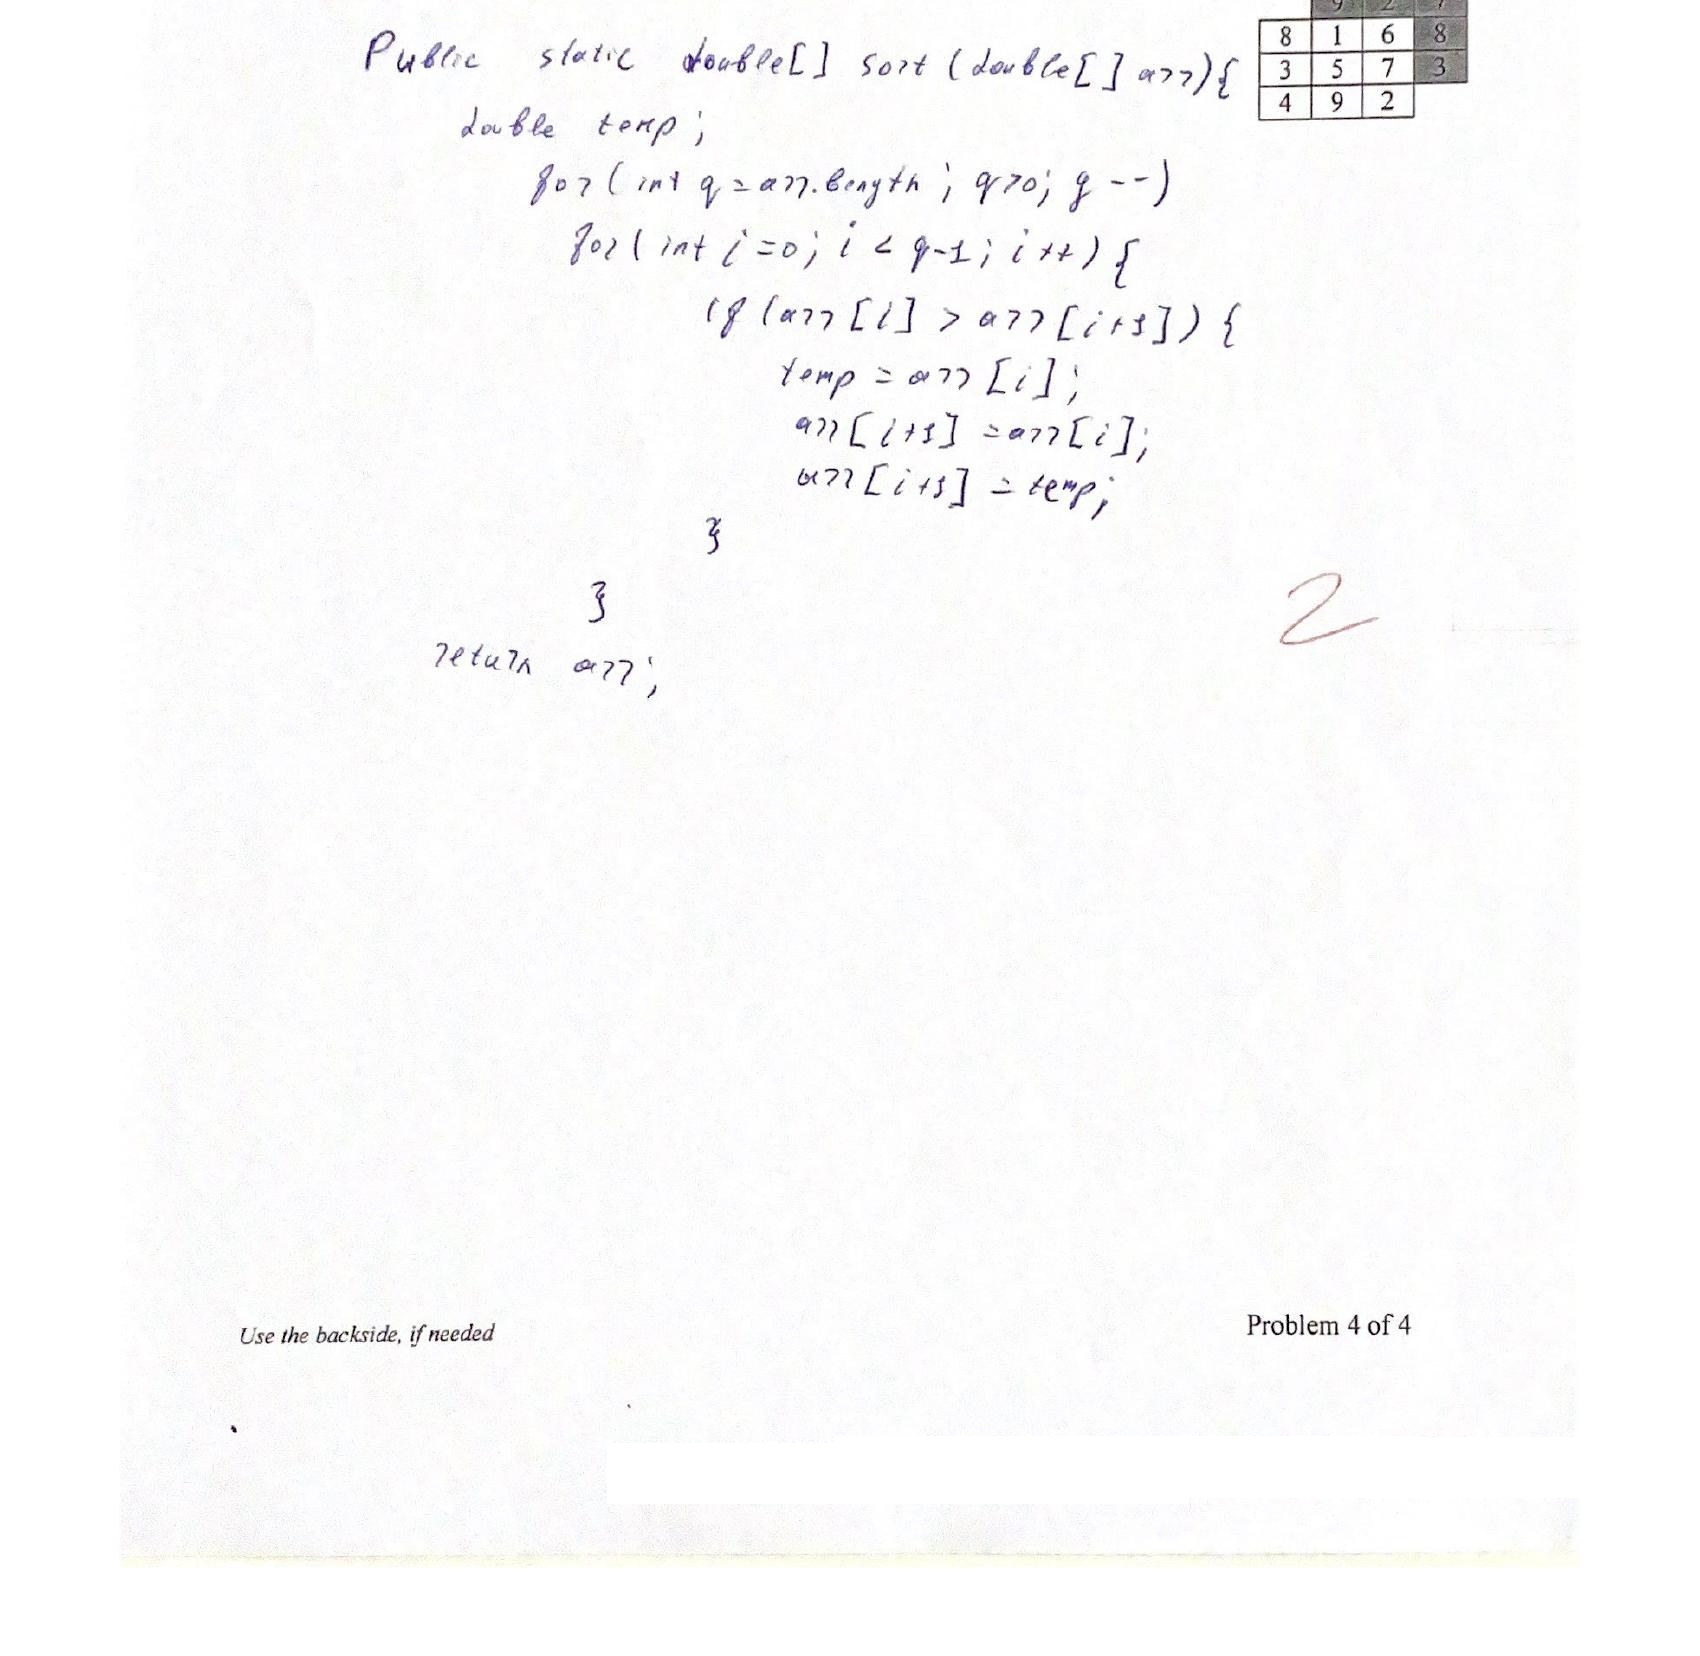 9 2 7
8 1 6 8
3 5 7 3
4 9 2
Public static double[] sort (double[] arr){
double temp;
for(int q = arr.length; q>0; q--)
for(int i=0; i < q-1; i++){
if (arr[i] > arr[i+1]){
temp = arr[i];
arr[i+1] = arr[i];
arr[i+1] = temp;
}
}
return arr;
2
Use the backside, if needed
Problem 4 of 4